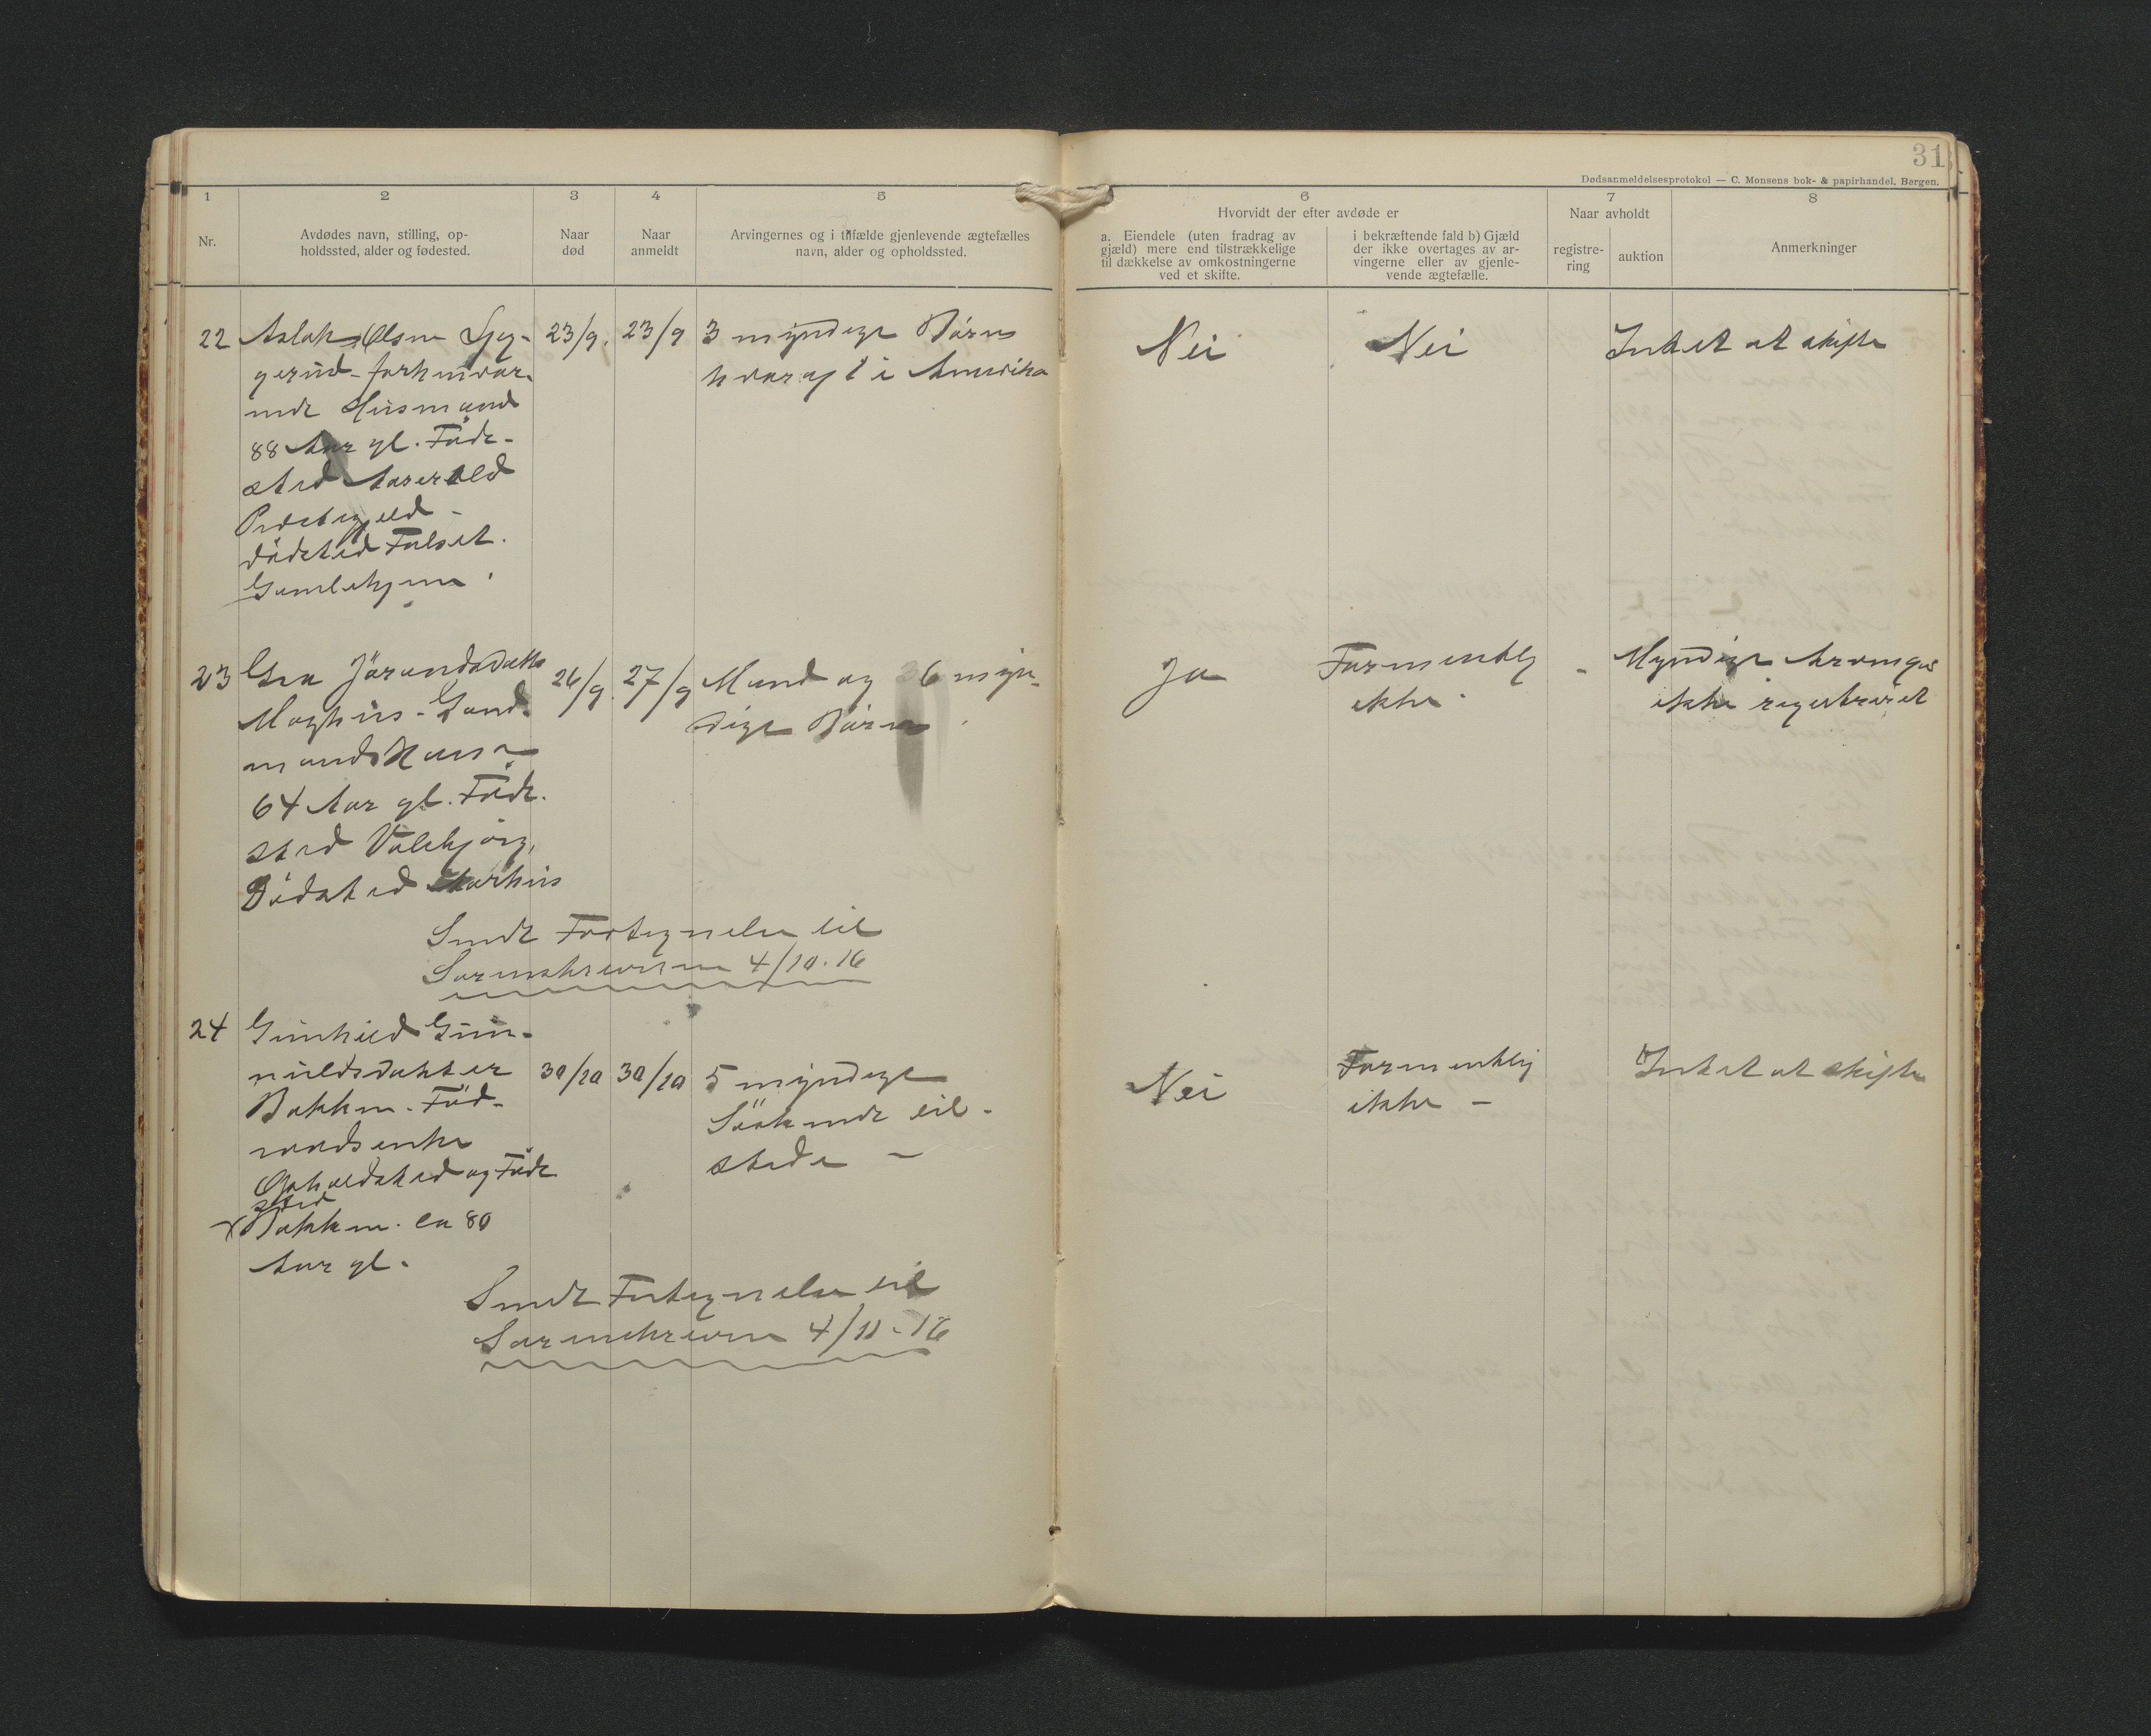 31
Dødsanmeldelsesprotokol — C. Monsens bok- & papirhandel, Bergen.
1
2
3
4
5
6
7
8
Nr.
Avdødes navn, stilling, op-
holdssted, alder og fødested.
Naar
død
Naar
anmeldt
Arvingernes og i tilfælde gjenlevende ægtefælles
navn, alder og opholdssted.
Hvorvidt der efter avdøde er
a. Eiendele (uten fradrag av
gjæld) mere end tilstrækkelige
til dækkelse av omkostningerne
ved et skifte.
i bekræftende fald b) Gjæld
der ikke overtages av ar-
vingerne eller av gjenle-
vende ægtefælle.
Naar avholdt
registre-
ring
auktion
Anmerkninger
22 Aslak Olsen
gerud - forhenvær-
ende Husmand
88 Aar gl. Føde-
sted Aaserald
Præstegjeld -
dødsted Fulset.
Gamlehjem
23/9. 23/9
3 myndige Børn
hvoraf 1 i Amerika
Nei
Nei
Intet at skifte
23 Gro Jørundsdatter
Moghus - Gaard-
mandskone
64 Aar gl. Føde-
sted
Dødsted
26/9. 27/9
Mand og 6 myn-
dige Børn
Ja
Formentlig
ikke -
Myndige Arvinger
ikke registreret
Sendt Fortegnelse til
Sorenskriveren 4/10.16
24 Gunhild Gun-
nuldsdatter
Bakken. Fød-
raadsenke
Opholdsted og Føde
sted
Bakken. ca 80
Aar gl.
30/10 30/10
5 myndige
Søskende til-
stede -
Nei
Formentlig
ikke -
Intet at skifte
Sendt Fortegnelse til
Sorenskriveren 4/11-16